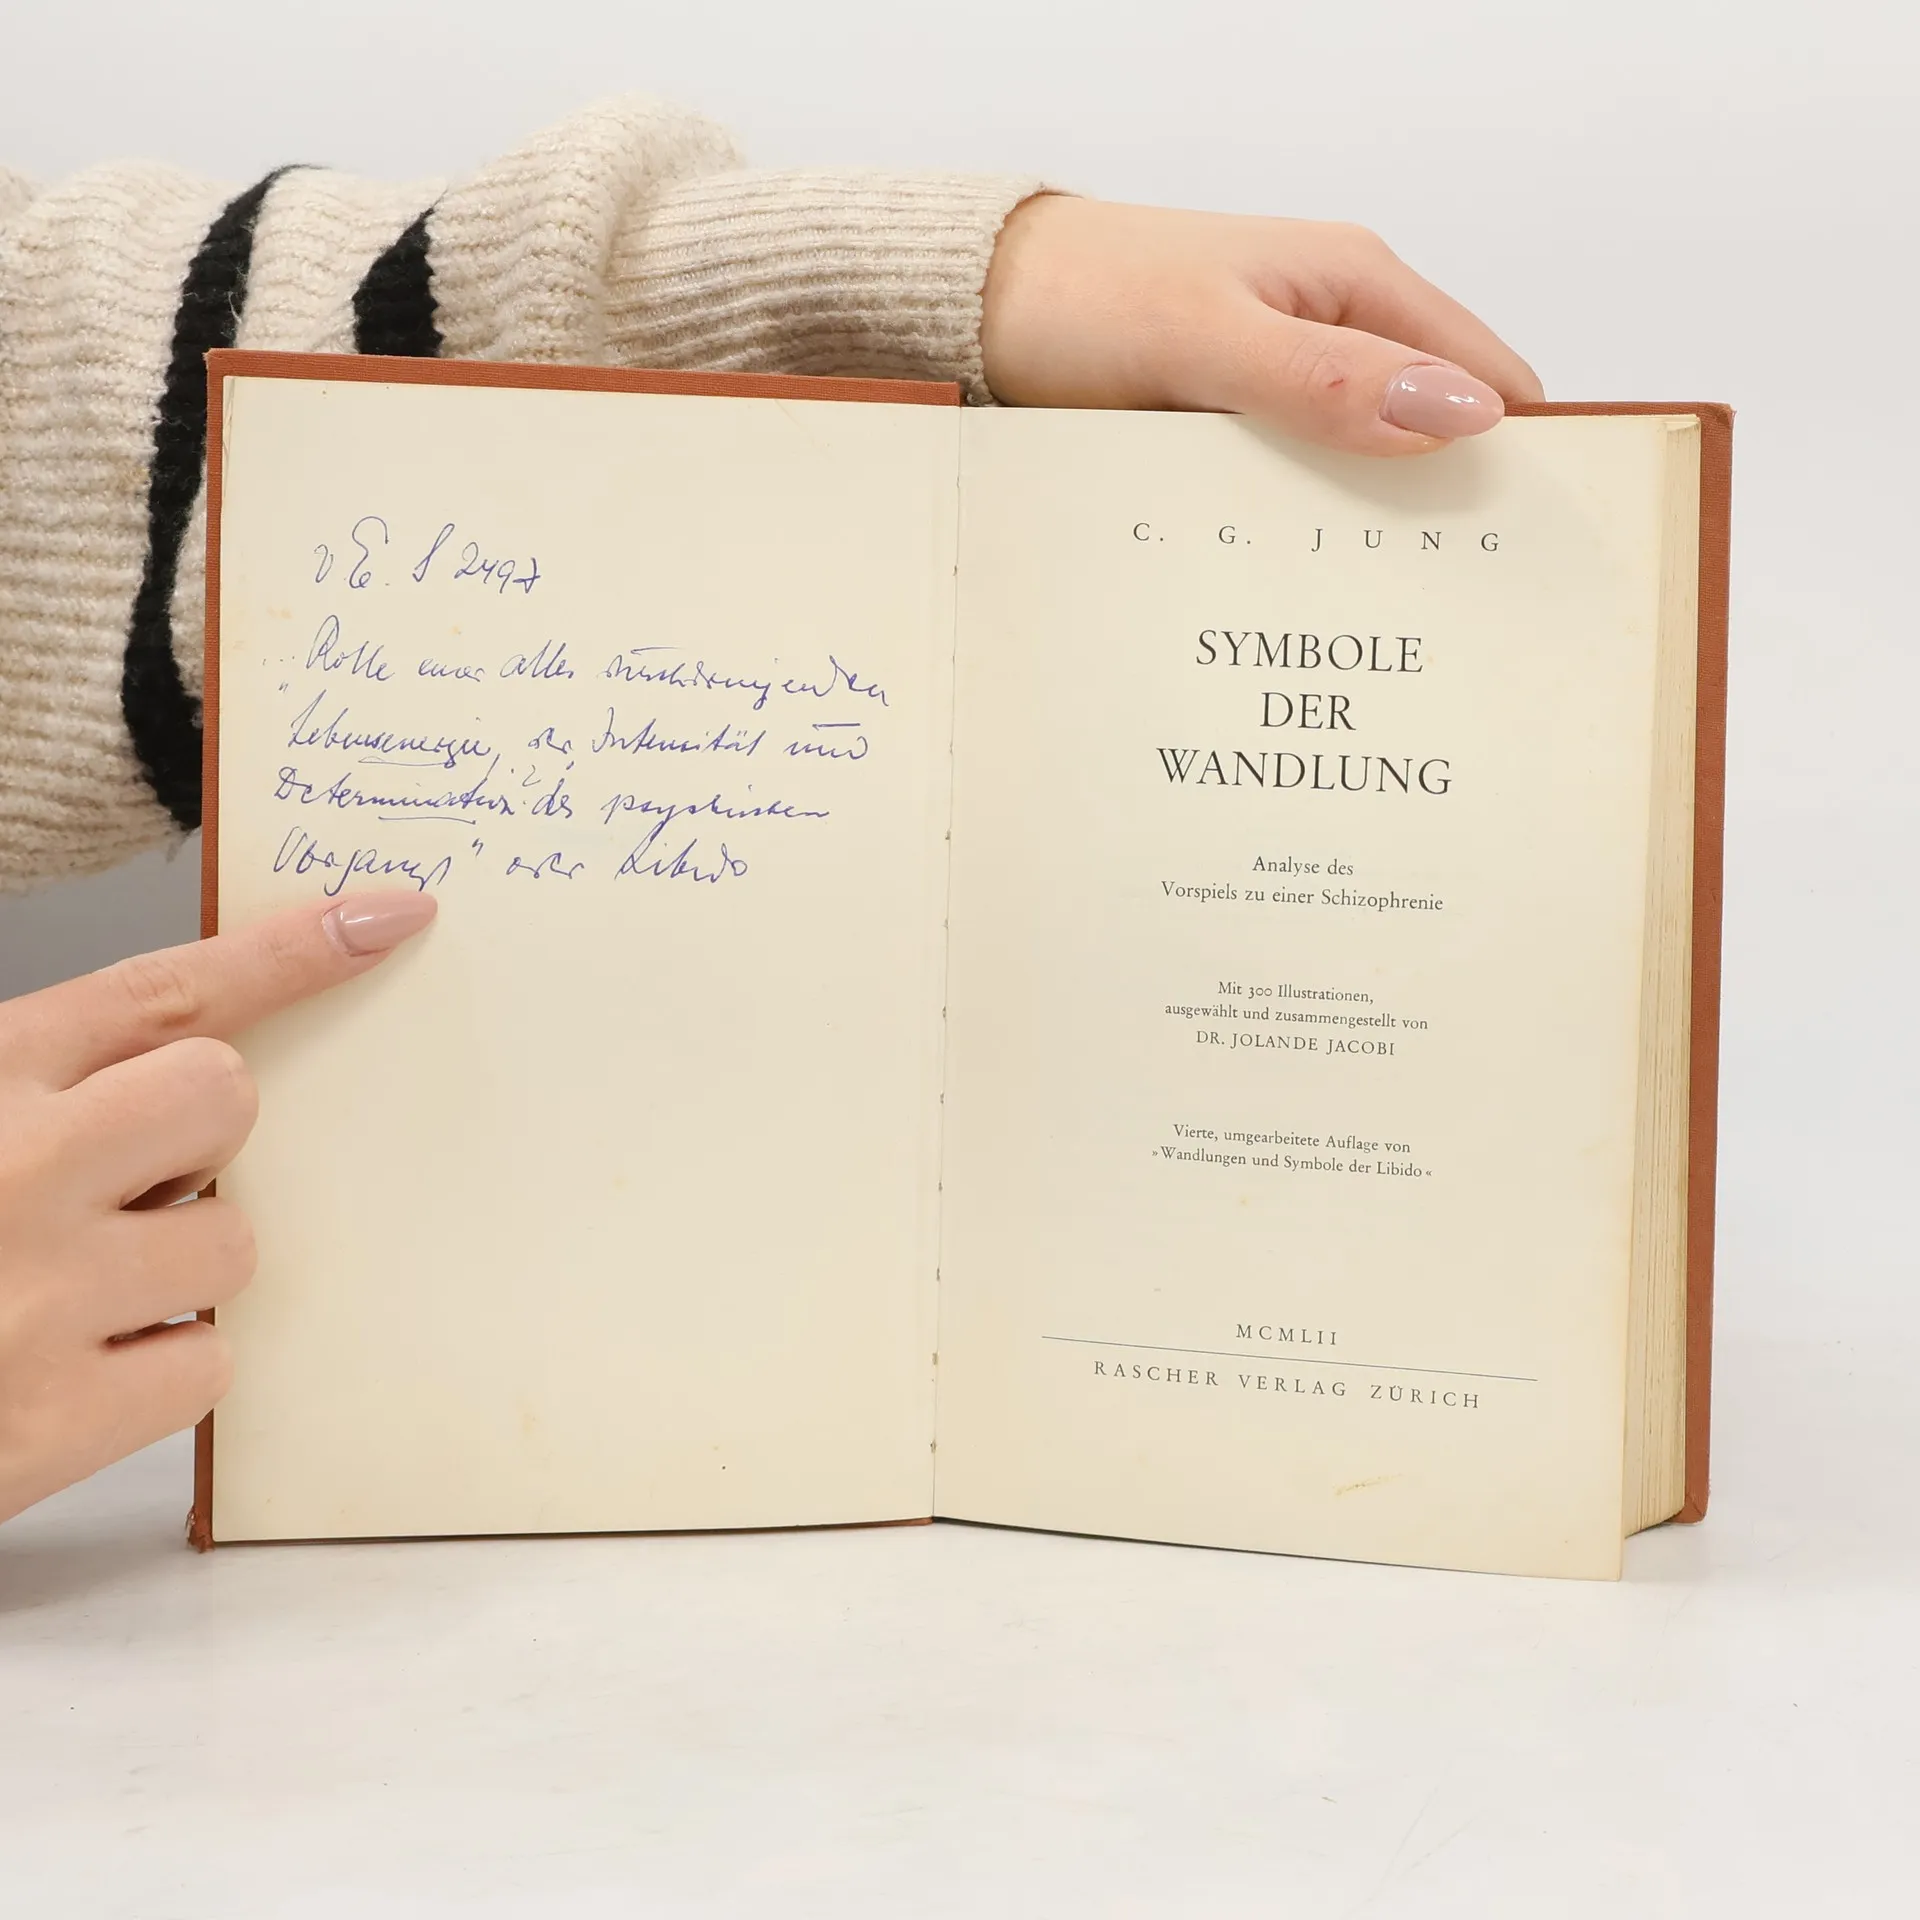 v. E. S 2497
"Rolle einer alles
Lebensenergie, der Intensität und
Determination des psychischen
Vorgangs" oder Libido
C. G. JUNG
SYMBOLE
DER
WANDLUNG
Analyse des
Vorspiels zu einer Schizophrenie
Mit 300 Illustrationen,
ausgewählt und zusammengestellt von
DR. JOLANDE JACOBI
Vierte, umgearbeitete Auflage von
»Wandlungen und Symbole der Libido«
MCMLII
RASCHER VERLAG ZÜRICH